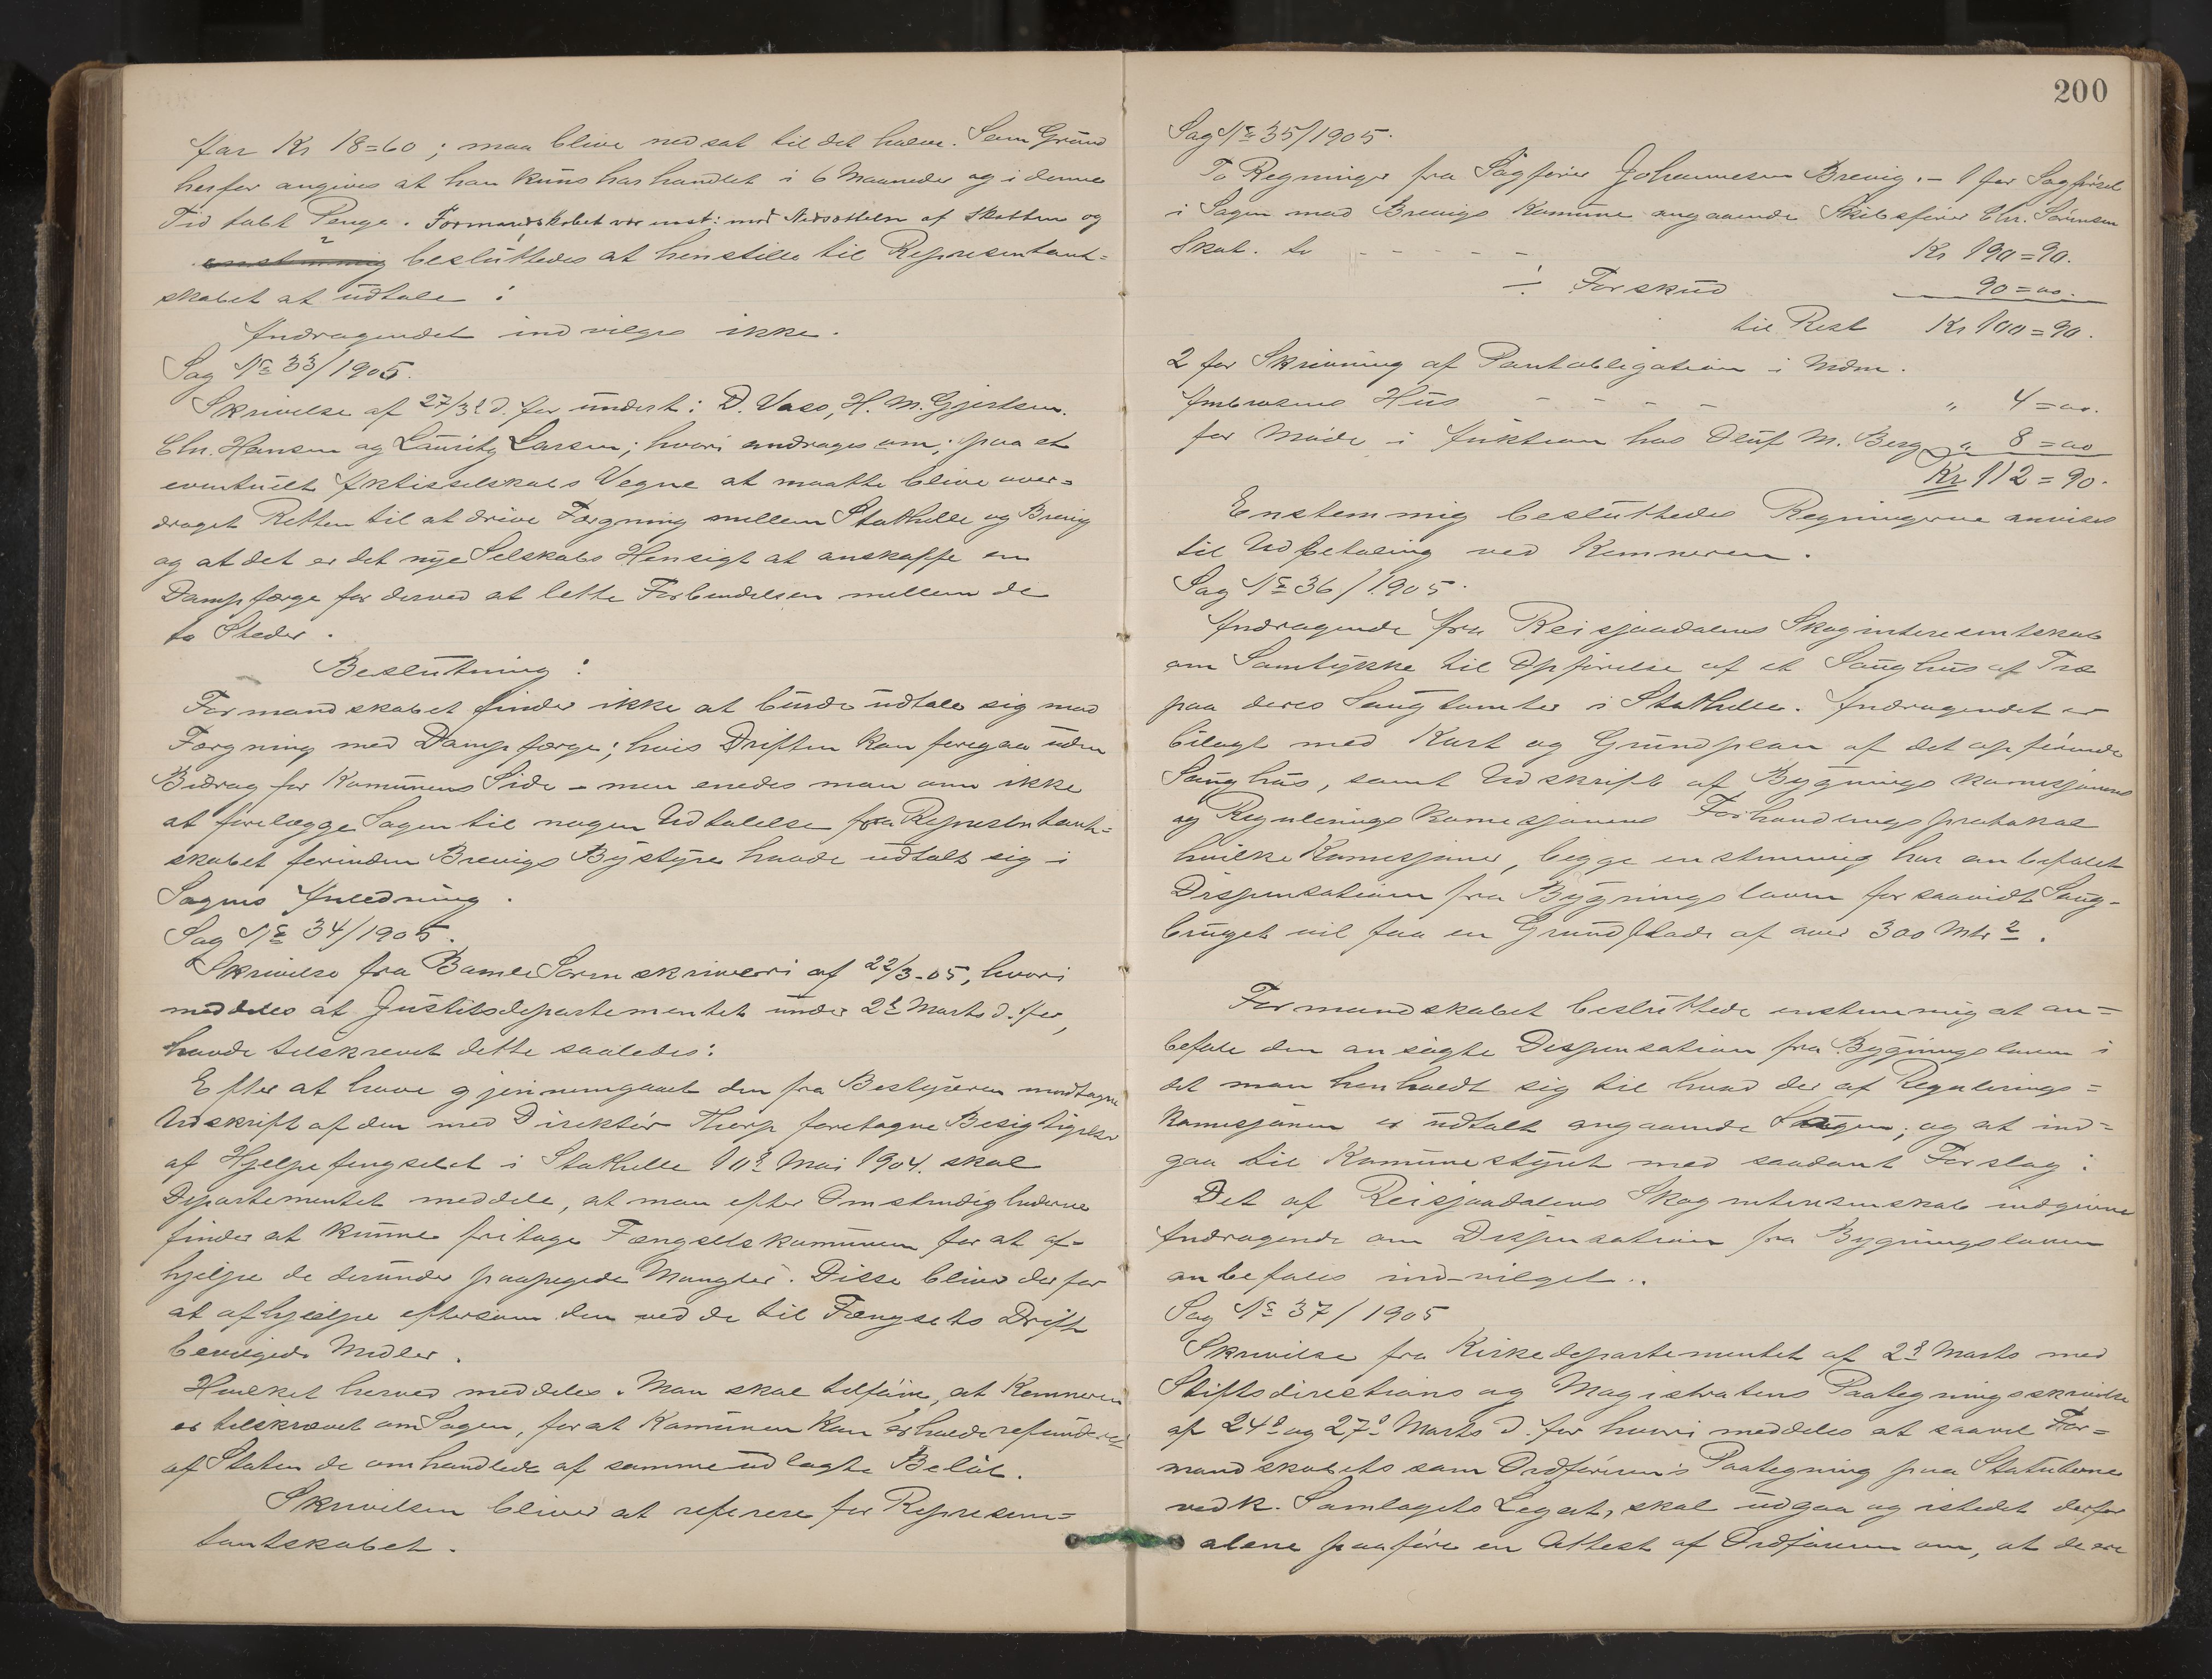 for Kr 18=60 ; maa blive nedsat til det halve. Som Grund
herfor angives at han kuns har handlet i 6 Maaneder og i denne
Tid tabt Penge. Formandskabet var enst: mod Nedsættelse af Skatten og
besluttedes at henstille til Representant=
skabet at udtale :
Andragendet indvilges ikke.
Sag No 33/1905.
Skrivelse af 27/3 d. for undert: D. Vaso, H. M. Gjertsen.
Chr. Hansen og Lauritz Larsen; hvori andrages om; paa et
eventuelt Aktieselskabs Vegne at maatte blive over=
draget Retten til at drive Færgning mellem Stathelle og Brevig
og at det er det nye Selskabs Hensigt at anskaffe en
Dampfærge for derved at lette Forbindelsen mellem de
to Steder.
Beslutning :
Formandskabet finder ikke at burde udtale sig mod
Færgning med Dampfærge; hvis Driften kan foregaa uden
Bidrag fra Kommunens Side – men enedes man om ikke
at forelægge Sagen til nogen Udtalelse fra Representant=
skabet forinden Brevigs Bystyre havde udtalt sig i
Sagens Anledning.
Sag No 34/1905.
Skrivelse fra Bamle Sorenskriveri af 22/3-05, hvori
meddeles at Justitsdepartementet under 2d Marts d. før,
havde tilskrevet dette saaledes:
Efter at have gjennemgaaet den fra Bestyreren modtagne
Udskrift af den med Direktør Thorp foretagne Besigtigelse
af Hjelpefengselet i Stathelle 10d Mai 1904. skal
Departementet meddele, at man efter Omstendighederne
finder at kunne fritage Fængselskommunen for at af=
hjelpe de derunder paapegede Mangler. Disse bliver derfor
at afhjælpe eftersom den ved de til Fængsets Drift
bevilgede Midler.
Hvilket herved meddeles. Man skal tilføie, at Kemneren
er tilskrevet om Sagen, for at Kommunen kan erholde refunderet
af Staten de omhandlede af samme udlagte Beløb.
Skrivelsen bliver at referere for Represen=
tantskabet.
200
Sag No 35/1905.
To Regninger fra Sagfører Johannesen Brevig. – 1 for Sagførsel
i Sagen mod Brevigs Komune angaaende Skibsfører Chr. Sørensen
Skat. to - - - - - Kr 190=90.
÷ Forskud 90=00.
til Rest Kr 100=90.
2 for Skrivning af Pantobligation i Mdm.
Ambrosens Hus - - - - " 4=00.
for Møde i Auktion hos Oluf M. Berg " 8=00
Kr 112=90.
Enstemmig besluttedes Regningerne anvises
til Udbetaling ved Kemneren.
Sag No 36/1905.
Andragende fra Reisjaadalens Skoginteresentskab
om Samtykke til Opførelse af et Saughus af Træ
paa deres Saugtomter i Stathelle. Andragendet er
bilagt med Kart og Grundplan af det opførende
Saughus, samt Udskrift af Bygningskomisjonens
og Reguleringskomisjonens Forhandlingsprotokol
hvilke Komisjoner, begge enstemmig har anbefalet
Dispensation fra Bygningsloven forsaavidt Saug-
bruget vil faa en Grundflade af over 300 Mtr 2.
Formandskabet besluttede enstemmig at an=
befale den ansøgte Dispensation fra Bygningsloven i
det man henholdt sig til hvad der af Regulerings=
komisjonen er udtalt angaaende Saugen; og at ind=
gaa til Komunestyret med saadant Forslag :
Det af Reisjaadalens Skoginteresenskab indgivne
Andragende om Dispensation fra Bygningsloven
anbefales ind-vilget..
Sag No 37/1905
Skrivelse fra Kirkedepartementet af 2d Marts med
Stiftsdirections og Magistratens Paategningsskrivelse
af 24d og 27d Marts d. før hvori meddeles at saavel For=
mandskabets som Ordførerens Paategning paa Statuterne
vedk. Samlagets Legat, skal udgaa og istedet derfor
alene paaføre en Attest af Ordføreren om, at de ere